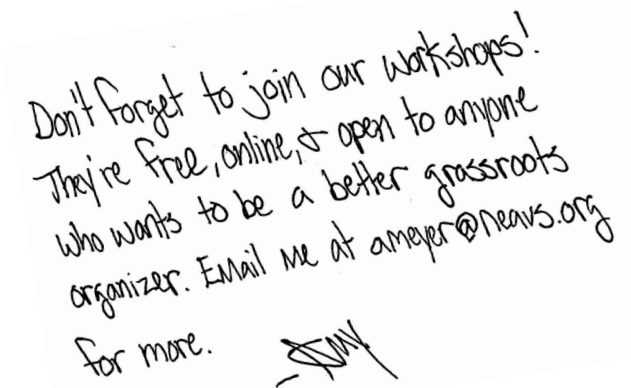 Don't forget to join our workshops!
They're free, online, & open to anyone
who wants to be a better grassroots
organizer. Email me at ameyer@neavs.org
for more. -Amy